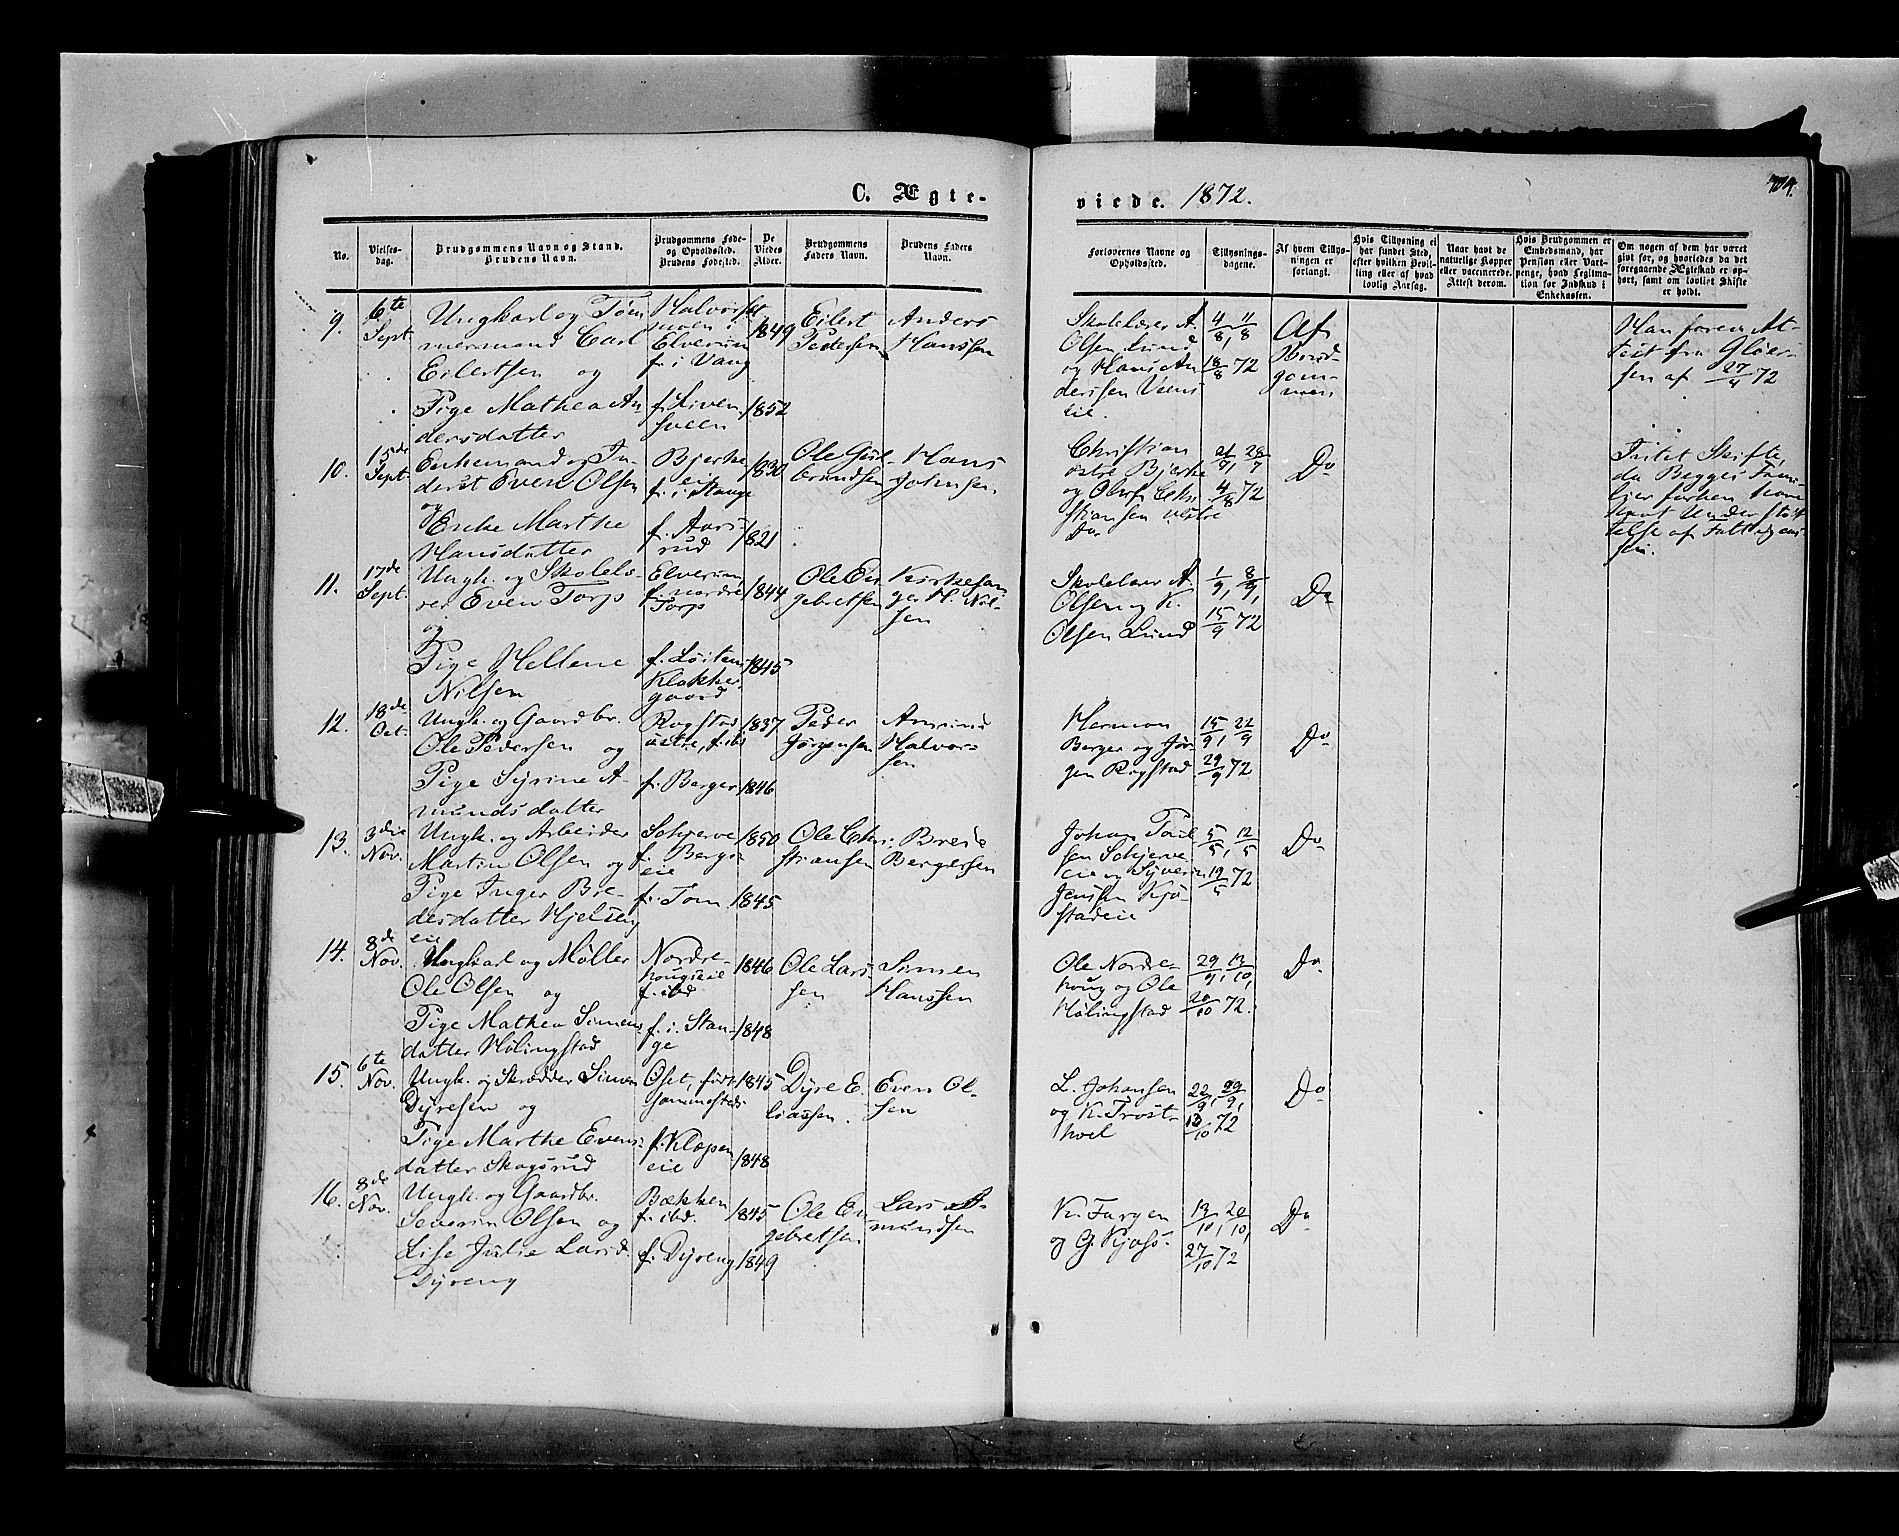 C. Ægte-
viede. 1872.
No.
Vielses-
dag.
Brudgommens Navn og Stand.
Brudens Navn.
Brudgommens Føde-
og Opholdssted.
Brudens Fødested.
De
Viedes
Alder.
Brudgommens
Faders Navn.
Brudens Faders
Navn.
Forlovernes Navne og
Opholdssted.
Tillysnings-
dagene.
Af hvem Tillys-
ningen er
forlangt.
Hvis Tillysning ei
har fundet Sted,
efter hvilken Bevil-
ling eller af hvad
lovlig Aarsag.
Naar havt de
naturlige Kopper
eller vaccinerede.
Attest derom.
Hvis Brudgommen er
Embedsmand, har
Pension eller Vart-
penge, hvad Legitima-
tion for Indskud i
Enkekassen.
Om nogen af dem har været
gift før, og hvorledes da det
foregaaende Ægteskab er op-
hørt, samt om lovligt Skifte
er holdt.
9.
6te
Sept.
Ungkarl og Töm
mermand Carl
Eilertsen og
Pige Mathea An
dersdatter
moen i
Elverum
f. i Vang
1849
1852
Eilert
Pedersen
Anders
Hanssen
Skolelærer A.
Olsen Lund
og Hans An
derssen
eie.
4/8, 11/8
18/8 72
Af
Brud-
gom-
men
Han forev. At-
test fra
sen af 27/4 72
10.
15de
Sept.
Enkemand og In-
derst Even Olsen
og
Enke Marthe
Hansdatter
Bjerke
eie
f. i Stange
f. Aars-
rud
1830
1821
Ole Gul-
brandsen
Hans
Johnsen
Christian
østre Bjerke
og Oluf Chri
stiansen vestre
Do
21/7, 28/7
4/8 72
Do
Intet Skifte,
da Begges Fami-
lier forhen have
havt Understøt
telse af Fattigcas-
sen.
11.
17de
Sept.
Ungk. og Skolelæ-
rer Even Torp
og
Pige Hellene
Nilsen
Elverum,
f. nordre
Torp
f. Løiten
Klokker-
gaard
1844
1845
Ole En
gebretsen
Kirkesan
ger H. Nil-
sen
Skolelærer A.
Olsen og K.
Olsen Lund
1/9, 8/9,
15/9 72
Do
12.
18de
Oct.
Ungk. og Gaardbr.
Ole Pedersen og
Pige Syrine A-
mundsdatter
Rogstad
østre, f. ibd
f. Berger
1837
1846
Peder
Jørgensen
Amund
Halvor-
sen
Herman
Berger og Jør
gen Rogstad
15/9, 22/9
29/9 72
Do
13.
3die
Nov.
Ungk. og Arbeider
Martin Olsen og
Pige Inger Bre-
desdatter Hjelseng
eie
Schjerve
f. Bergs-
eie
f. Tom
1850
1845
Ole Chri
stiansen
Brede
Bergersen
Johan Paul
sen Schjerve
eie og Syverin
Jensen Kjø-
stadeie
5/5, 12/5
19/5 72
Do
14.
8de
Nov.
Ungkarl og Møller
Ole Olsen og
Pige Mathea Simens
datter Hølingstad
Nordre-
hougseie
f. ibd
f. i. Stan-
ge
1846
1848
Ole Lars
sen
Simen
Hanssen
Ole Nordre-
houg og Ole
Hølingstad
29/9, 13/10,
20/10 72.
Do
15.
6te
Nov.
Ungk. og Skrædder Simen
Dyresen og
Pige Marthe Evens-
datter Skogsrud
Oset, født
sammesteds
f. Klæpen
eie
1845
1848
Dyre E-
liassen.
Even Ol-
sen
L. Johansen
og K. Trøst-
hoel
22/9, 29/9,
13/10 72
Do
16.
8de
Nov.
Ungk. og Gaardbr.
Severin Olsen og
Lise Julie Larsd.
Dyreng
Bækken
f. ibd.
f. Dyreng
1845
1849
Ole En
gebretsen
Lars A-
mundsen
K. Farjen
og G. Kjøs-
13/10, 20/10,
27/10 72
Do